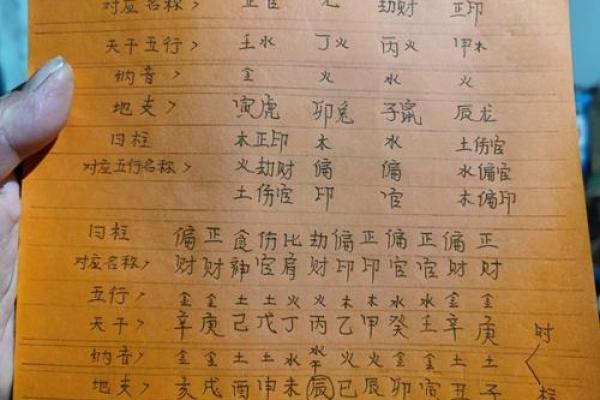 对应名称> 正官 无 劫财 正印
天干五行> 壬水 丁火 丙火 甲木
纳音> 金 火 水 火
地支> 寅虎 卯兔 子鼠 辰龙
日柱 木正印 木 水 土伤官
对应五行名称> 火劫财 偏 偏 水偏官
土伤官 印 官 木偏印
日柱 偏 正 食 伤 比 劫 偏 正 偏 正 偏 正
对应名称> 财 财 神 官 肩 财 印 印 官 官 财 财
五行> 金 金 土 土 火 火 木 木 水 水 金 金
天干> 辛 庚 己 戊 丁 丙 乙 甲 癸 壬 辛 庚 时
纳音> 金 金 土 土 水 水 火 火 金 金 土 土
地支> 亥 戌 酉 申 未 辰 巳 辰 卯 寅 丑 子 柱